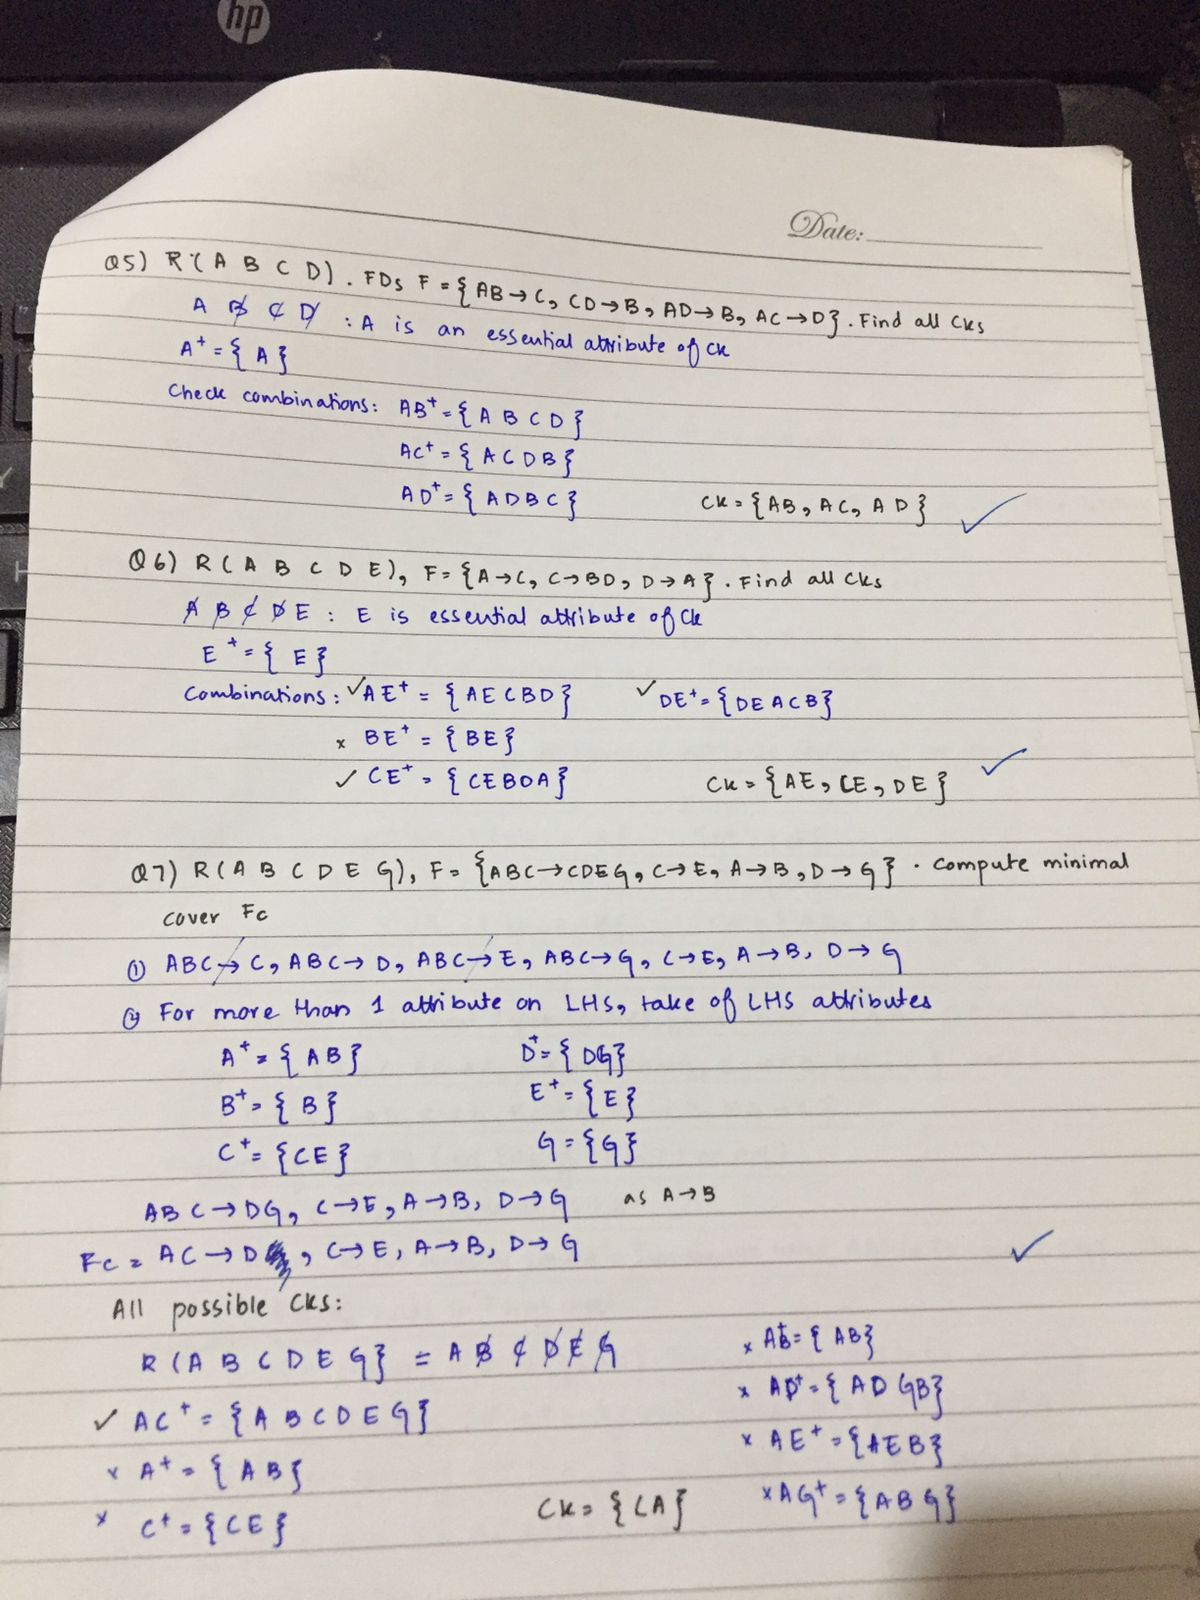 hp
Date:
Q5) R(A B C D). FDs F = {AB→C, CD→B, AD→B, AC→D}. Find all CKs
A B C D : A is an essential attribute of CK
A⁺ = {A}
Check combinations: AB⁺ = {A B C D}
AC⁺ = {A C D B}
AD⁺ = {A D B C} CK = {AB, AC, AD} ✓
Q6) R(A B C D E), F = {A→C, C→BD, D→A}. Find all CKs
A B C D E : E is essential attribute of CK
E⁺ = {E}
Combinations: ✓ AE⁺ = {A E C B D} ✓ DE⁺ = {D E A C B}
x BE⁺ = {B E}
✓ CE⁺ = {C E B D A} CK = {AE, CE, DE} ✓
Q7) R(A B C D E G), F = {ABC→CDEG, C→E, A→B, D→G}. Compute minimal
cover Fc
① ABC→C, ABC→D, ABC→E, ABC→G, C→E, A→B, D→G
② For more than 1 attribute on LHS, take of LHS attributes
A⁺ = {AB} D⁺ = {DG}
B⁺ = {B} E⁺ = {E}
C⁺ = {CE} G = {G}
ABC→DG, C→E, A→B, D→G as A→B
Fc = AC→D, C→E, A→B, D→G ✓
All possible CKs:
R(A B C D E G} = A B C D E G x AB⁺ = {AB}
✓ AC⁺ = {A B C D E G} x AD⁺ = {AD GB}
x A⁺ = {AB} x AE⁺ = {AEB}
x C⁺ = {CE} CK = {CA} x AG⁺ = {ABG}